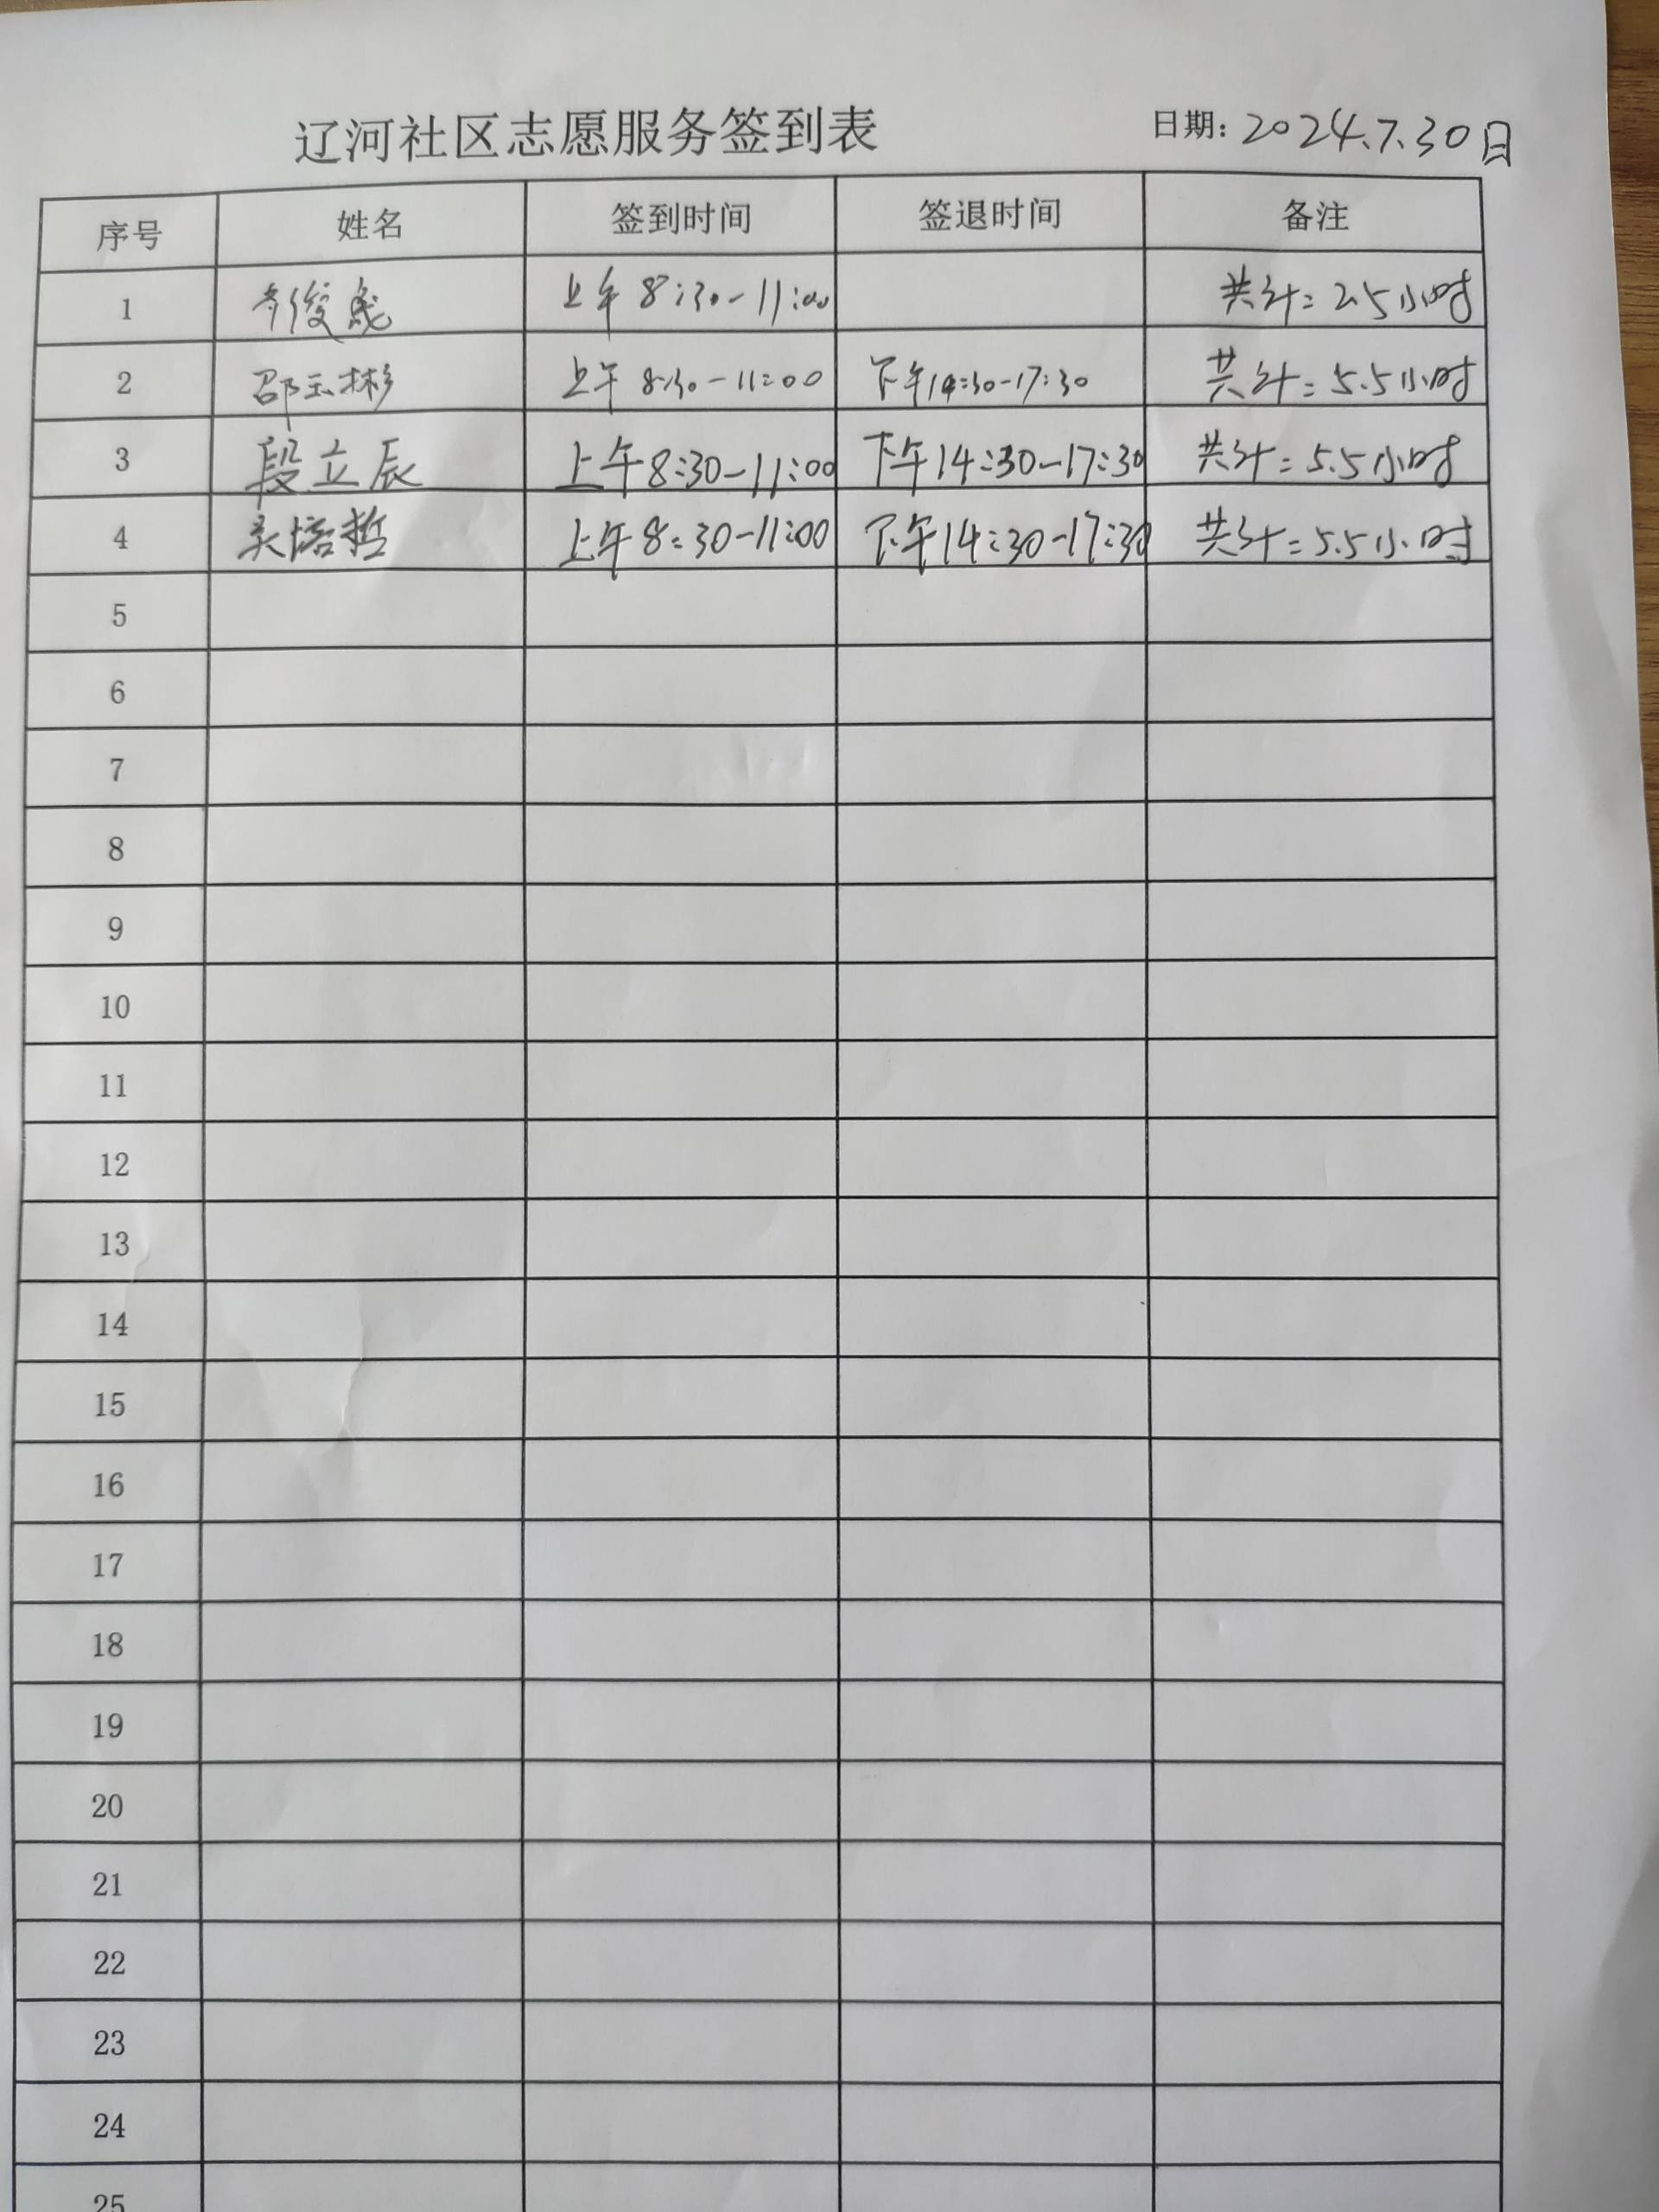 辽河社区志愿服务签到表 日期: 2024.7.30日
序号 姓名 签到时间 签退时间 备注
1 俊 上午 8:30-11:00 共计=2.5小时
2 邵玉彬 上午 8:30-11:00 下午14:30-17:30 共计=5.5小时
3 段立辰 上午8:30-11:00 下午14:30-17:30 共计=5.5小时
4 吴培哲 上午8:30-11:00 下午14:30-17:30 共计=5.5小时
5
6
7
8
9
10
11
12
13
14
15
16
17
18
19
20
21
22
23
24
25